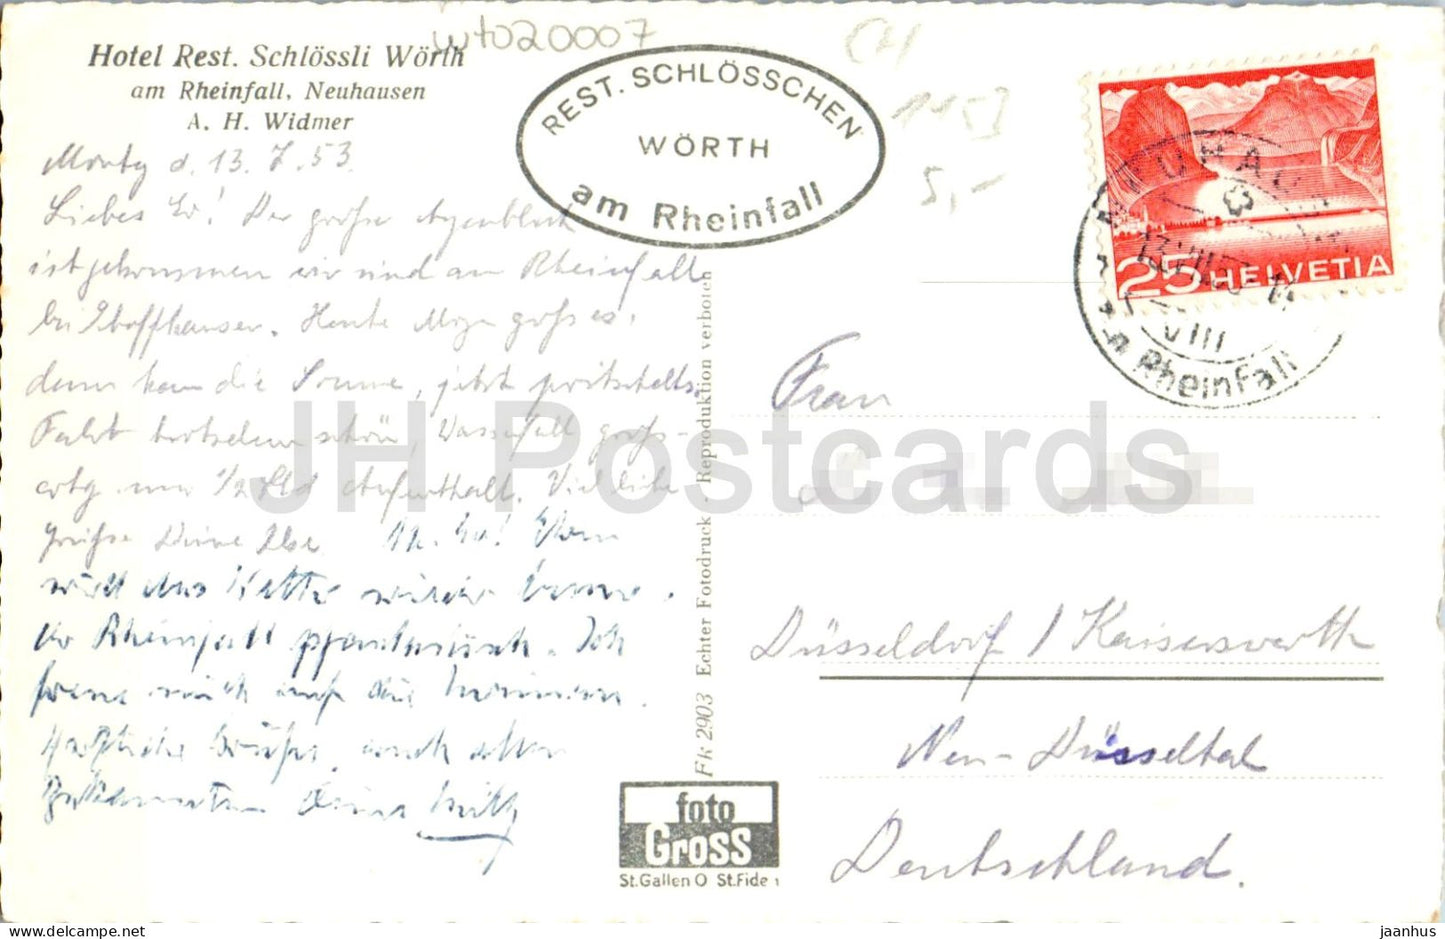 wt020007
CH
1953
5,-
Hotel Rest. Schlössli Wörth
am Rheinfall, Neuhausen
A. H. Widmer
REST. SCHLÖSSCHEN
WÖRTH
am Rheinfall
25 HELVETIA
NEUHAUSEN
VIII
am Rheinfall
d. 13. 7. 53.
Liebes! Der große Augenblick
ist gekommen wir sind am Rheinfall
bei Schaffhausen. Heute Morgen goß es,
dann kam die Sonne, jetzt
Fahrt trotzdem schön, Wasserfall groß-
artig nur 1/2 Std Aufenthalt. Viel liebe
Grüße Deine Ilse
das Wetter
Der Rheinfall phantastisch. Ich
freue mich auf die
Herzliche Grüße, auch allen
Bekannten Deine
Frau
Düsseldorf / Kaiserswerth
Neu-Düsseltal
Deutschland.
FK 2903 Echter Fotodruck - Reproduktion verboten
foto
Gross
St.Gallen O St.Fide 1
JH Postcards
jaanhus